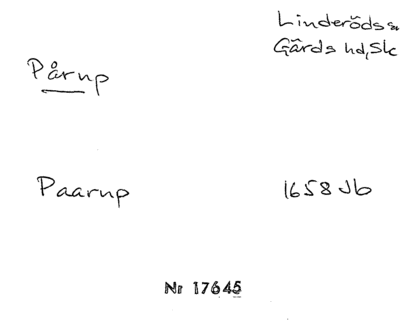 Linderöds sn
Gärds hd, Sk
Pårup
Paarup 1658 Jb
Nr 17645